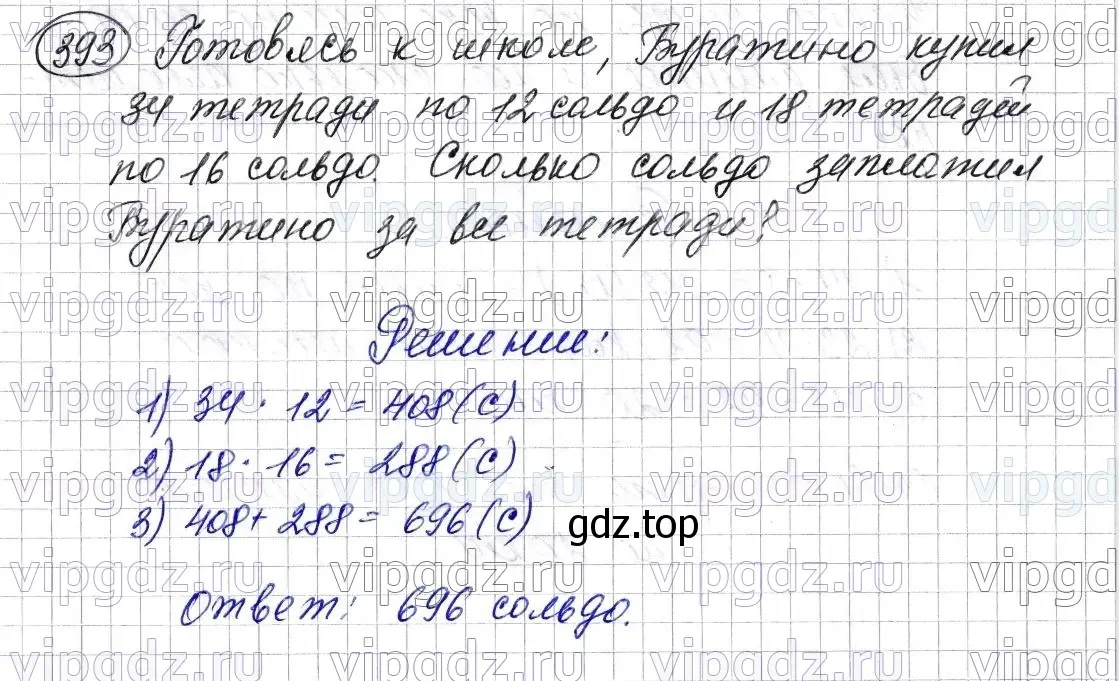 393 Готовясь к школе, Буратино купил
34 тетради по 12 сольдо и 18 тетрадей
по 16 сольдо. Сколько сольдо заплатил
Буратино за все тетради?
Решение:
1) 34 · 12 = 408 (с)
2) 18 · 16 = 288 (с)
3) 408 + 288 = 696 (с)
gdz.top
Ответ: 696 сольдо.
vipgdz.ru